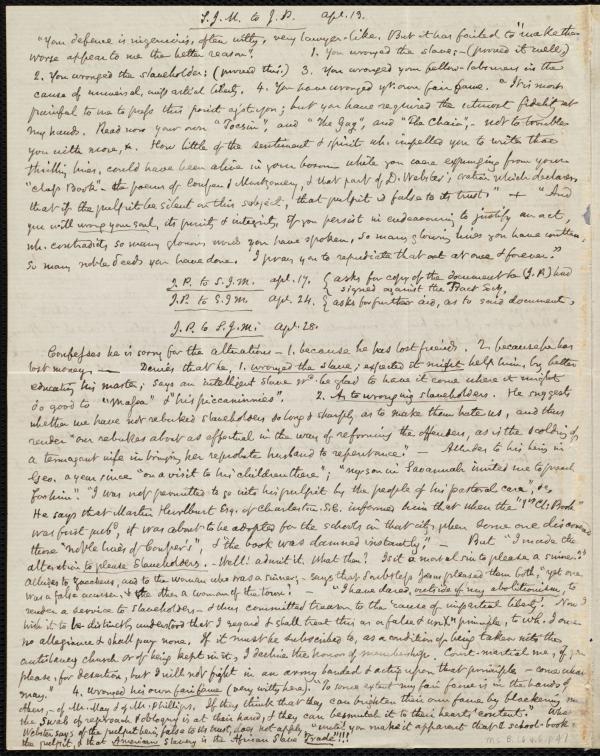 S.J.M. to J.P. Apl. 13.
"Your defence is ingenious, often witty, very lawyer-like. But it has failed to "make the
worse appear to me the better reason." 1. You wronged the slave; - (proved it well)
2. You wronged the slaveholder: (proved this.) 3. You wronged your fellow-labourers in the
cause of universal, impartial liberty. 4. You have wronged yr. own fair fame. "It is most
painful to me to press this point agst you; but you have required the utmost fidelity at
my hands. Read now your own "Tocsin", and "The Gag", and "The Chain", - not to trouble
you with more, &c. How little of the sentiment & spirit wh. impelled you to write that
thrilling lines, could have been alive in your bosom while you were expunging from your
"Class Book" the poems of Cowper & Montgomery, & that part of D. Webster's oration which declares
that if the pulpit be silent on this subject, that pulpit is false to its trust." + "And
you will wrong your soul, its purity & integrity, if you persist in endeavouring to justify an act,
wh. contradicts so many glorious words you have spoken, so many glowing lines you have written,
so many noble deeds you have done. I pray you to repudiate that act at once & forever."
J.P. to S.J.M. Apl. 17. { asks for copy of the document he (J.P.) had
signed against the Tract Socy.
J.P. to S.J.M. Apl. 24. { asks for further aid, as to said document,
J.P. to S.J.M. Apl. 28.
Confesses he is sorry for the alterations - 1. because he has lost friends. 2. because he has
lost money. — Denies that he, 1. wronged the slave; expected it might help him, by better
educating his master; says an intelligent slave wd. be glad to have it come where it might
do good to "massa" & "his piccaninnies". 2. As to wronging slaveholders. He suggests
whether we have not rebuked slaveholders so long & sharply as to make them hate us, and thus
render "our rebukes about as effectual in the way of reforming the offenders, as is the scolding of
a termagant wife in bringing her reprobate husband to repentance." — Alludes to his being in
Geo. a year since "on a visit to his children there"; "my son in Savannah invited me to preach
for him". "I was not permitted to go into his pulpit by the people of his pastoral care", &c.
He says that Martin Hurlburt Esq. of Charleston S.C. informed him that when the "1st Cl. Book"
was first pubd, it was about to be adopted for the schools in that city, when some one discovered
those "noble lines of Cowper's", & "the book was damned instantly." — But "I made the
alteration to please slaveholders. - Well! admit it. What then? Is it a mortal sin to please a sinner?"
Alludes to Zaccheus, and to the woman who was a sinner; - says that doubtless Jesus pleased them both, "yet one
was a false accuser, & the other a woman of the town." — "I have dared, outside of my abolitionism, to
render a service to slaveholders - & thus committed treason to the 'cause of impartial liberty'. Now I
wish it to be distinctly understood that I regard & shall treat this as a false & principle, to wh. I owe
no allegiance & shall pay none. If it must be subscribed to, as a condition of being taken into the
antislavery church or of being kept in it, I decline the honor of membership. Court-martial me, if you
please, for desertion, but I will not fight in an army banded & acting upon that principle - come what
may." 4. Wronged his own fair fame (very witty here). "To some extent my fair fame is in the hands of
others, - of Mr. May & of Mr. Phillips. If they think that they can brighten their own fame by blackening mine
the swab of reproach & obloquy is at their hand, & they can besmut it to their hearts' content." What
Webster says of the pulpit being false to its trust, does not apply, "until you make it apparent that a school-book is
the pulpit, & that American slavery is the African Slave Trade"!!!